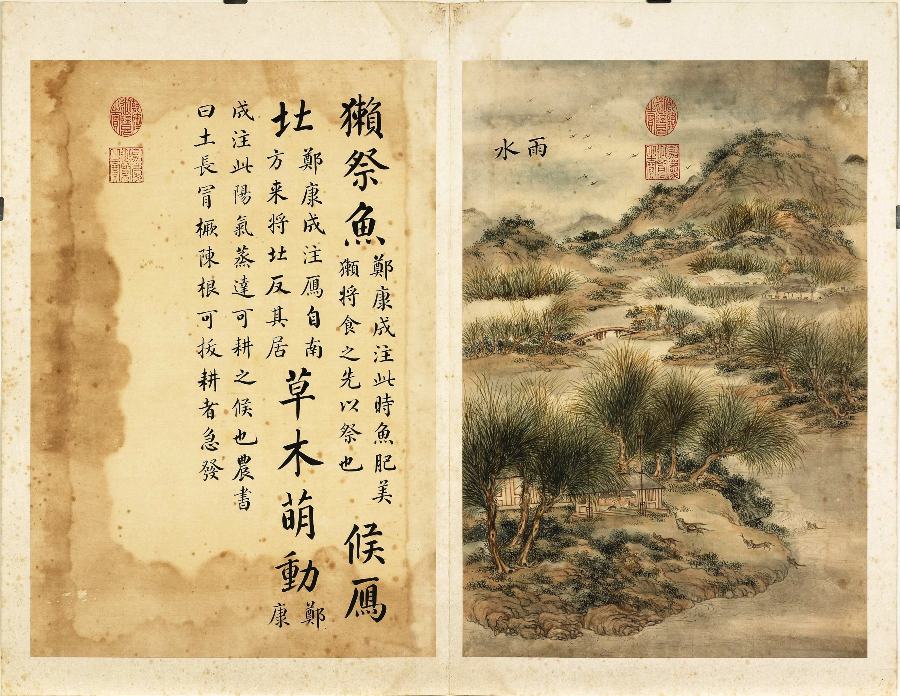 雨水
獺祭魚
鄭康成注此時魚肥美
獺將食之先以祭也
候鴈
北
鄭康成注鴈自南
方來將北反其居
草木萌動
鄭
康
成注此陽氣蒸達可耕之候也農書
曰土長冒橛陳根可拔耕者急發